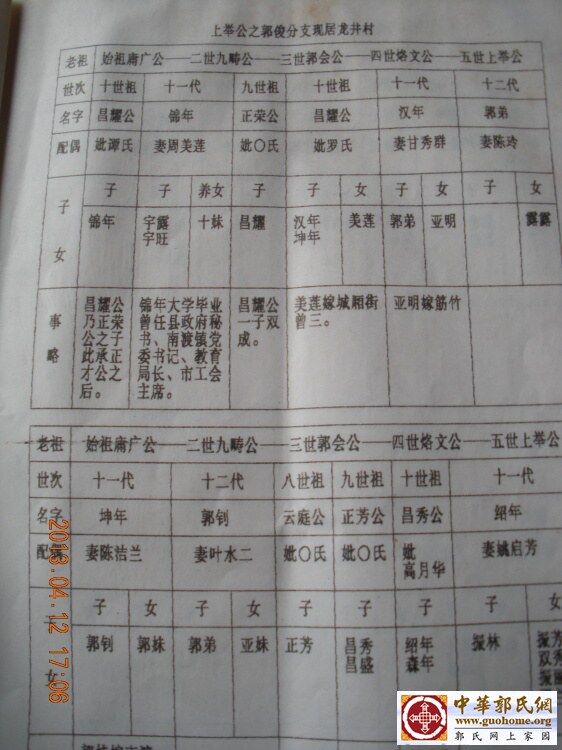 上举公之郭俊分支现居龙井村
老祖 始祖庸广公——二世九畴公——三世郭会公——四世烙文公——五世上举公
世次 十世祖 十一代 九世祖 十世祖 十一代 十二代
名字 昌耀公 锦年 正荣公 昌耀公 汉年 郭弟
配偶 妣谭氏 妻周美莲 妣〇氏 妣罗氏 妻甘秀群 妻陈玲
子女 子 子 养女 子 子 女 子 女 子 女
锦年 宇露 十妹 昌耀 汉年 美莲 郭弟 亚明 露露
宇旺 坤年
事略
昌耀公乃正荣公之子此承正才公之后。
锦年大学毕业曾任县政府秘书、南渡镇党委书记、教育局长、市工会主席。
昌耀公一子双成。
美莲嫁城厢街曾三。
亚明嫁筋竹
老祖 始祖庸广公——二世九畴公——三世郭会公——四世烙文公——五世上举公
世次 十一代 十二代 八世祖 九世祖 十世祖 十一代
名字 坤年 郭钊 云庭公 正芳公 昌秀公 绍年
配偶 妻陈洁兰 妻叶水二 妣〇氏 妣〇氏 妣高月华 妻姚启芳
子 女 子 女 子 子 子 子 女
女 郭钊 郭妹 郭弟 亚妹 正芳 昌秀 绍年 振林
昌盛 森年
2013.04.12 17:06
中華郭氏網
www.guohome.org
郭氏网上家园